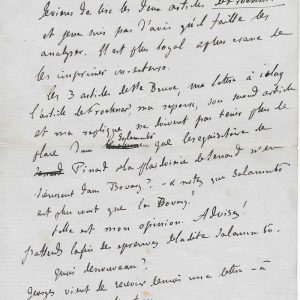 Je viens de lire les deux articles
et je ne suis pas d'avis qu'il faille les
analyser. Il est plus loyal & plus crâne de
les imprimer in-extenso.
Les 3 articles de Ste Beuve, ma lettre à
l'article de Froehner, ma réponse, son second article
et ma réplique ne doivent pas tenir plus de
place dans Salammbô que les réquisitoire de
Pinard & la plaidoirie de Senard n'en
tiennent dans Bovary? - & notez que Salammbô
est plus court que la Bovary!
Telle est mon opinion. Avisez!
J'attends la fin des épreuves de ladite Salammbô.
Quid de nouveau?
vient de recevoir une lettre - à